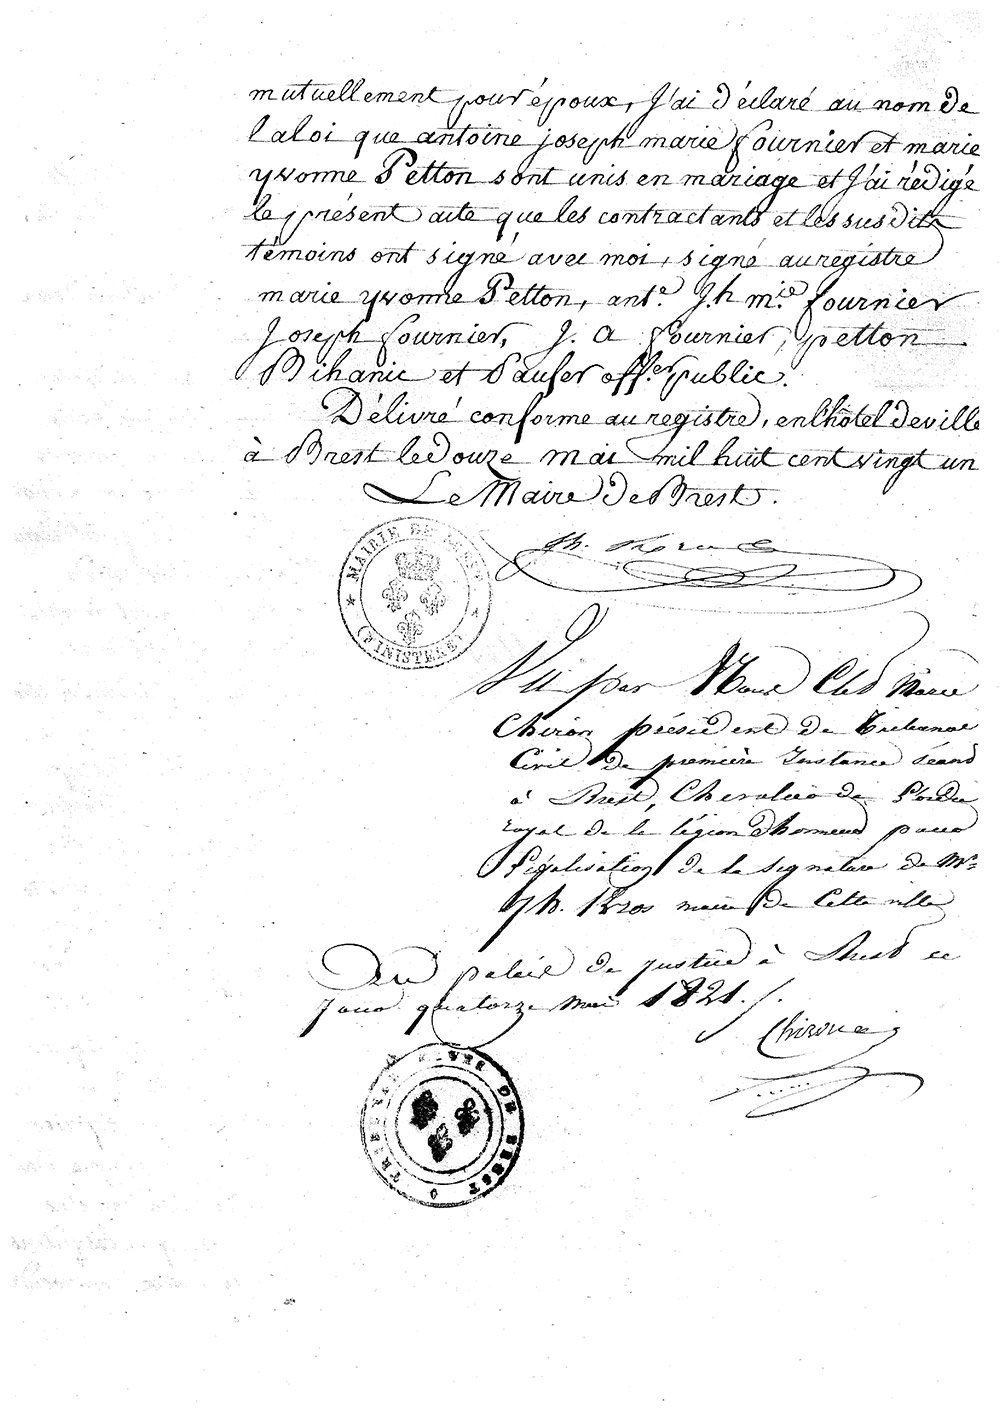 mutuellement pour époux, J'ai déclaré au nom de
la loi que antoine joseph marie fournier et marie
yvonne Petton sont unis en mariage et J'ai rédigé
le présent acte que les contractants et les susdits
témoins ont signé avec moi, signé au registre
marie yvonne Petton, ant.e J.h m.ie fournier
Joseph fournier, J. a fournier, petton
Bihanic et offer public.
Délivré conforme au registre, en l'hôtel de ville
à Brest le douze mai mil huit cent vingt un
Le Maire de Brest.
MAIRIE DE BREST
(FINISTERE)
Vu par Nous Marie
Chiron président du Tribunal
Civil de première Instance séant
à Brest, Chevalier de l'ordre
royal de la légion d'honneur pour
légalisation de la signature de Mr
Jh. Kros maire de Cette ville
Du palais de justice à Brest ce
jour quatorze mai 1821.
Chiron
TRIBUNAL CIVIL DE BREST